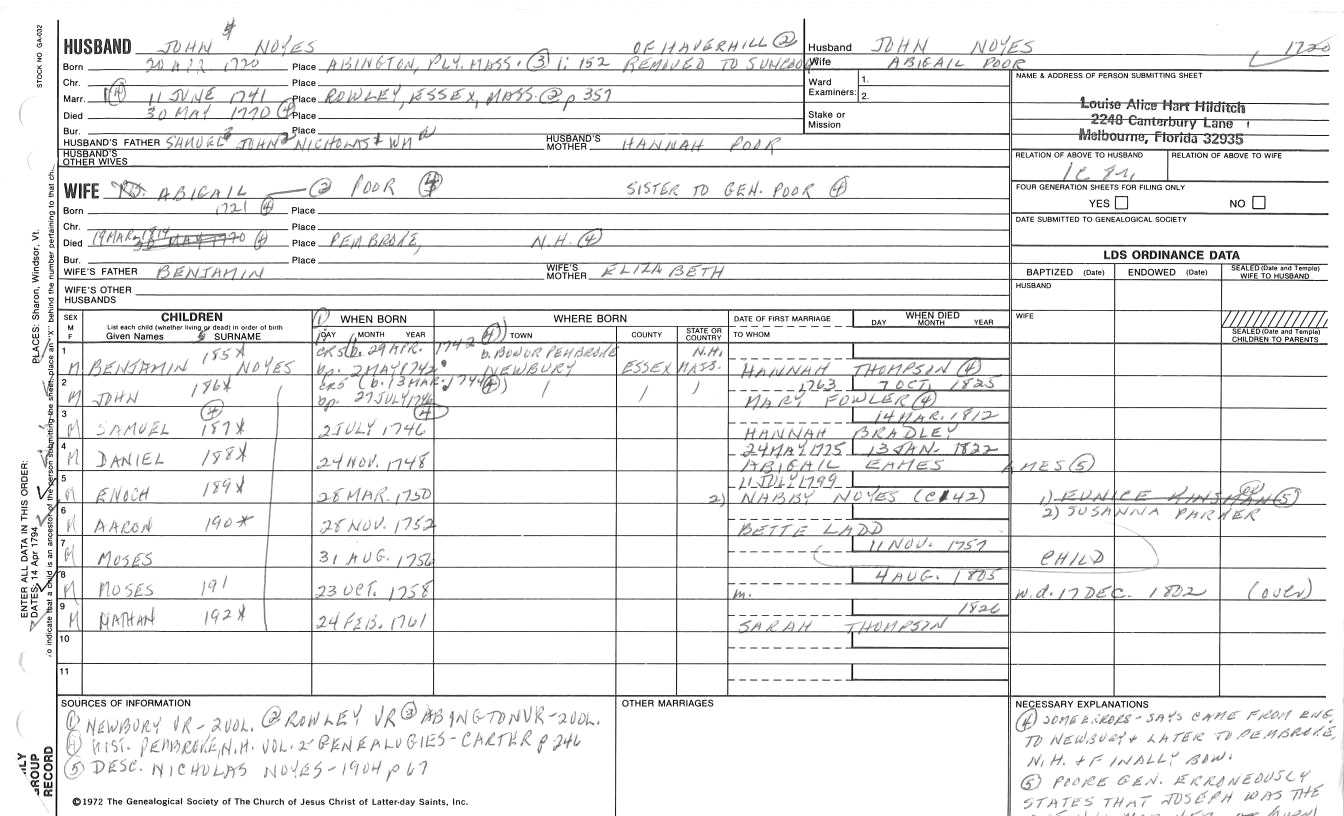 STOCK NO GA-032
HUSBAND JOHN NOYES OF HAVERHILL ②
Born 20 APR 1720 Place ABINGTON, PLY. MASS. ③ 1: 152 REMOVED TO
Chr. Place
Marr. 11 JUNE 1741 Place ROWLEY, ESSEX, MASS. ② p 357
Died 30 MAY 1770 ④ Place
Bur. Place
HUSBAND'S FATHER SAMUEL JOHN NICHOLAS WM HUSBAND'S MOTHER HANNAH POOR
HUSBAND'S OTHER WIVES
WIFE ABIGAIL ② POOR ④ SISTER TO GEN. POOR ④
Born 1721 ④ Place
Chr. Place
Died 19 MAR. 1814 30 MAY 1770 ④ Place PEMBROKE, N.H. ④
Bur. Place
WIFE'S FATHER BENJAMIN WIFE'S MOTHER ELIZABETH
WIFE'S OTHER HUSBANDS
Husband JOHN NOYES 1720
Wife ABIGAIL POOR
Ward Examiners: 1.
2.
Stake or Mission
NAME & ADDRESS OF PERSON SUBMITTING SHEET
Louise Alice Hart Hilditch
2240 Canterbury Lane
Melbourne, Florida 32935
RELATION OF ABOVE TO HUSBAND RELATION OF ABOVE TO WIFE
FOUR GENERATION SHEETS FOR FILING ONLY
YES NO
DATE SUBMITTED TO GENEALOGICAL SOCIETY
LDS ORDINANCE DATA
BAPTIZED (Date) ENDOWED (Date) SEALED (Date and Temple) WIFE TO HUSBAND
HUSBAND
WIFE
SEALED (Date and Temple) CHILDREN TO PARENTS
SEX M F
CHILDREN
List each child (whether living or dead) in order of birth
Given Names SURNAME
① WHEN BORN
DAY MONTH YEAR
WHERE BORN
④ TOWN COUNTY STATE OR COUNTRY
DATE OF FIRST MARRIAGE
TO WHOM
WHEN DIED
DAY MONTH YEAR
1 185 X CRS b. 29 APR. 1742 b. BOW OR PEMBROKE N.H.
M BENJAMIN NOYES bp. 2 MAY 1742 NEWBURY ESSEX MASS. HANNAH THOMPSON ④
2 186 X CRS (b. 13 MAR. 1744 ④) 1763 7 OCT. 1825
M JOHN bp. 27 JULY 1744 MARY FOWLER ④
3 ④ 14 MAR. 1812
M SAMUEL 187 X 2 JULY 1746 HANNAH BRADLEY
4 24 MAY 1775 13 JAN. 1822
M DANIEL 188 X 24 NOV. 1748 ABIGAIL EAMES AMES ⑤
5 11 JULY 1799
M ENOCH 189 X 28 MAR. 1750 2) NABBY NOYES (C 142) 1) EUNICE KINSMAN ⑤
2) SUSANNA PARKER
6
M AARON 190 X 28 NOV. 1752 BETTE LADD
7 11 NOV. 1757
M MOSES 31 AUG. 1756 CHILD
8 4 AUG. 1805
M MOSES 191 23 OCT. 1758 m. w.d. 17 DEC. 1802 (OVER)
9 1826
M NATHAN 192 X 24 FEB. 1761 SARAH THOMPSON
10
11
SOURCES OF INFORMATION
① NEWBURY VR-2 VOL. ② ROWLEY VR ③ ABINGTON VR-2 VOL.
④ HIST. PEMBROKE, N.H. VOL. 2 GENEALOGIES-CARTER p 246
⑤ DESC. NICHOLAS NOYES-1904 p 67
©1972 The Genealogical Society of The Church of Jesus Christ of Latter-day Saints, Inc.
OTHER MARRIAGES
NECESSARY EXPLANATIONS
④ SOME ERRORS-SAYS CAME FROM ENG.
TO NEWBURY & LATER TO PEMBROKE,
N.H. & FINALLY BOW.
⑤ POORE GEN. ERRONEOUSLY
STATES THAT JOSEPH WAS THE
ENTER ALL DATA IN THIS ORDER:
DATES: 14 Apr 1794 PLACES: Sharon, Windsor, Vt.
To indicate that a child is an ancestor of the person submitting the sheet, place an "X" behind the number pertaining to that ch.
GROUP RECORD